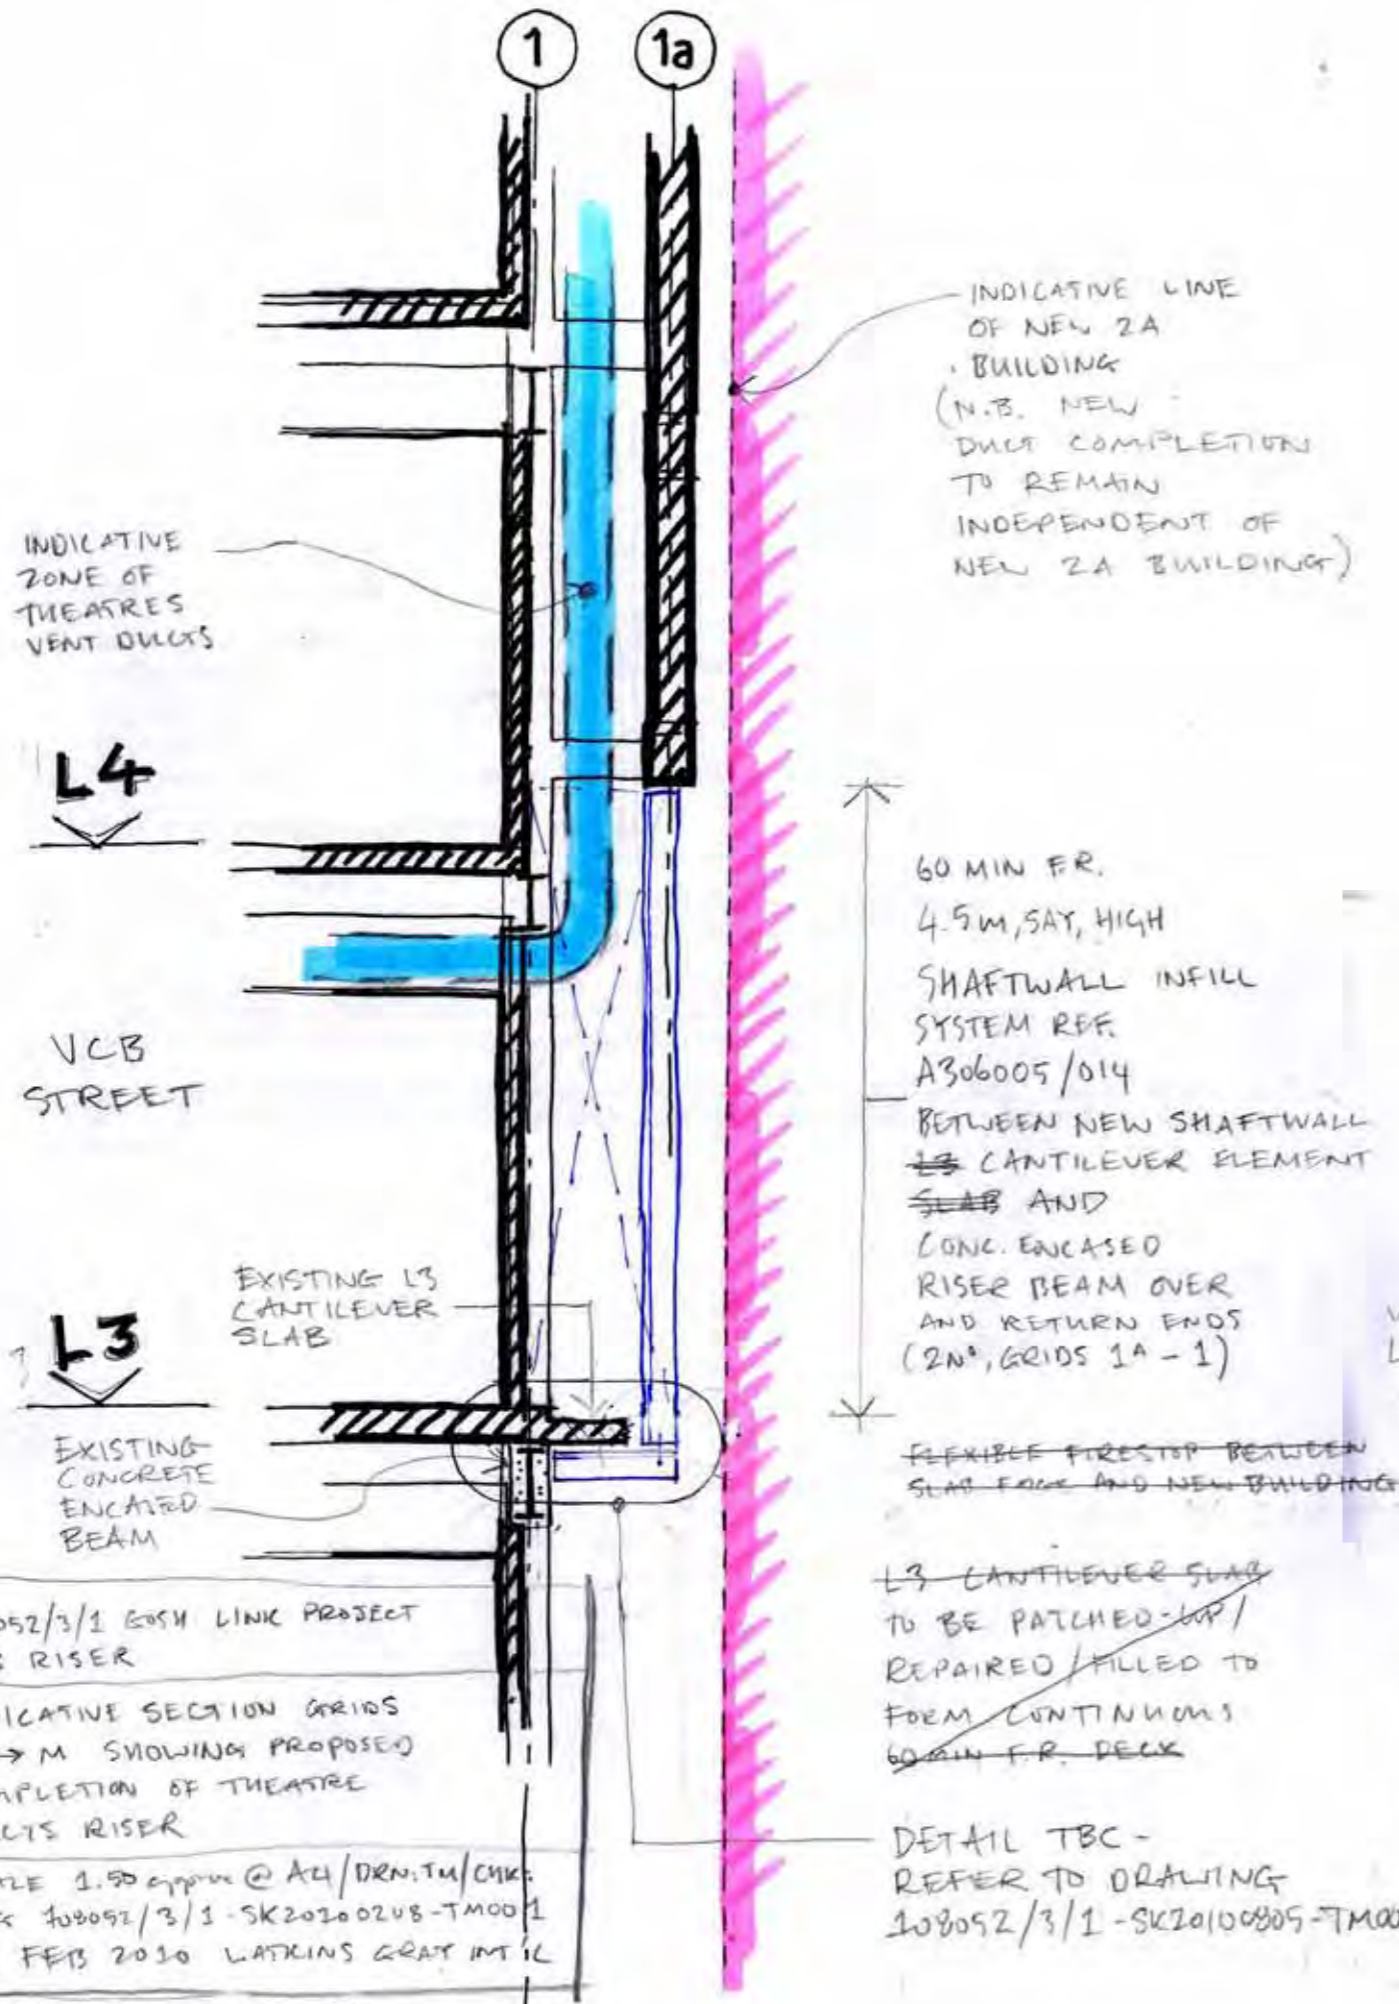 1
1a
INDICATIVE LINE
OF NEW 2A
BUILDING
(N.B. NEW
DUCT COMPLETION
TO REMAIN
INDEPENDENT OF
NEW 2A BUILDING)
INDICATIVE
ZONE OF
THEATRES
VENT DUCTS
L4
60 MIN F.R.
4.5m, SAY, HIGH
SHAFTWALL INFILL
SYSTEM REF.
A306005/014
BETWEEN NEW SHAFTWALL
L3 CANTILEVER ELEMENT
SLAB AND
CONC. ENCASED
RISER BEAM OVER
AND RETURN ENDS
(2Nº, GRIDS 1A - 1)
VCB
STREET
EXISTING L3
CANTILEVER
SLAB
L3
EXISTING
CONCRETE
ENCASED
BEAM
FLEXIBLE FIRESTOP BETWEEN
SLAB EDGE AND NEW BUILDING
L3 CANTILEVER SLAB
TO BE PATCHED-UP/
REPAIRED/FILLED TO
FORM CONTINUOUS
60 MIN F.R. DECK
DETAIL TBC -
REFER TO DRAWING
108052/3/1-SK20100805-TM00
052/3/1 GOSH LINK PROJECT
RISER
ICATIVE SECTION GRIDS
→ M SHOWING PROPOSED
MPLETION OF THEATRE
CTS RISER
1.50 approx @ A4/DRN:TM/CHK:
108052/3/1-SK20100208-TM001
FEB 2010 WATKINS GRAY INT'L